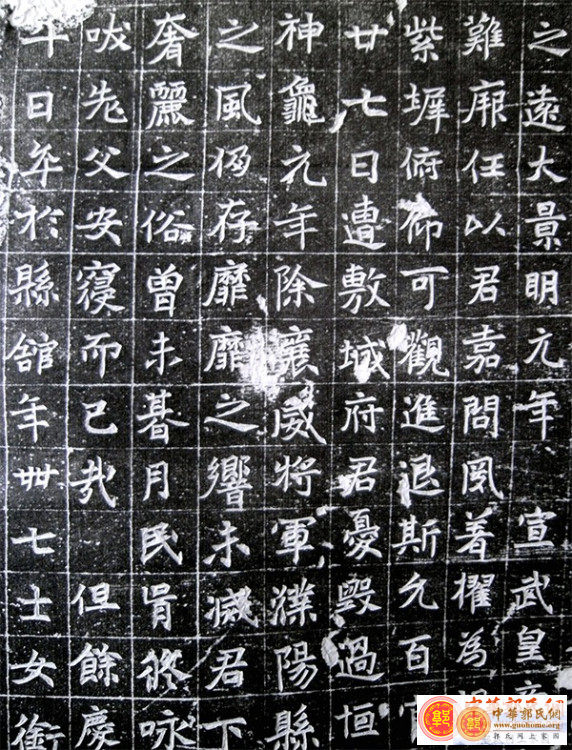 之遠大景明元年 宣武皇
難厥任以君嘉問夙著擢為
紫墀俯仰可觀進退斯允百
廿七日遭敷城府君憂毀過恒
神龜元年除襄威將軍濮陽縣
之風仍存靡靡之響未滅君
奢麗之俗曾未朞月民胥攸詠
先父安寢而已哉 但餘慶
日卒於縣館年卌七士女銜
中華郭氏網
www.guohome.org
郭氏网上家園